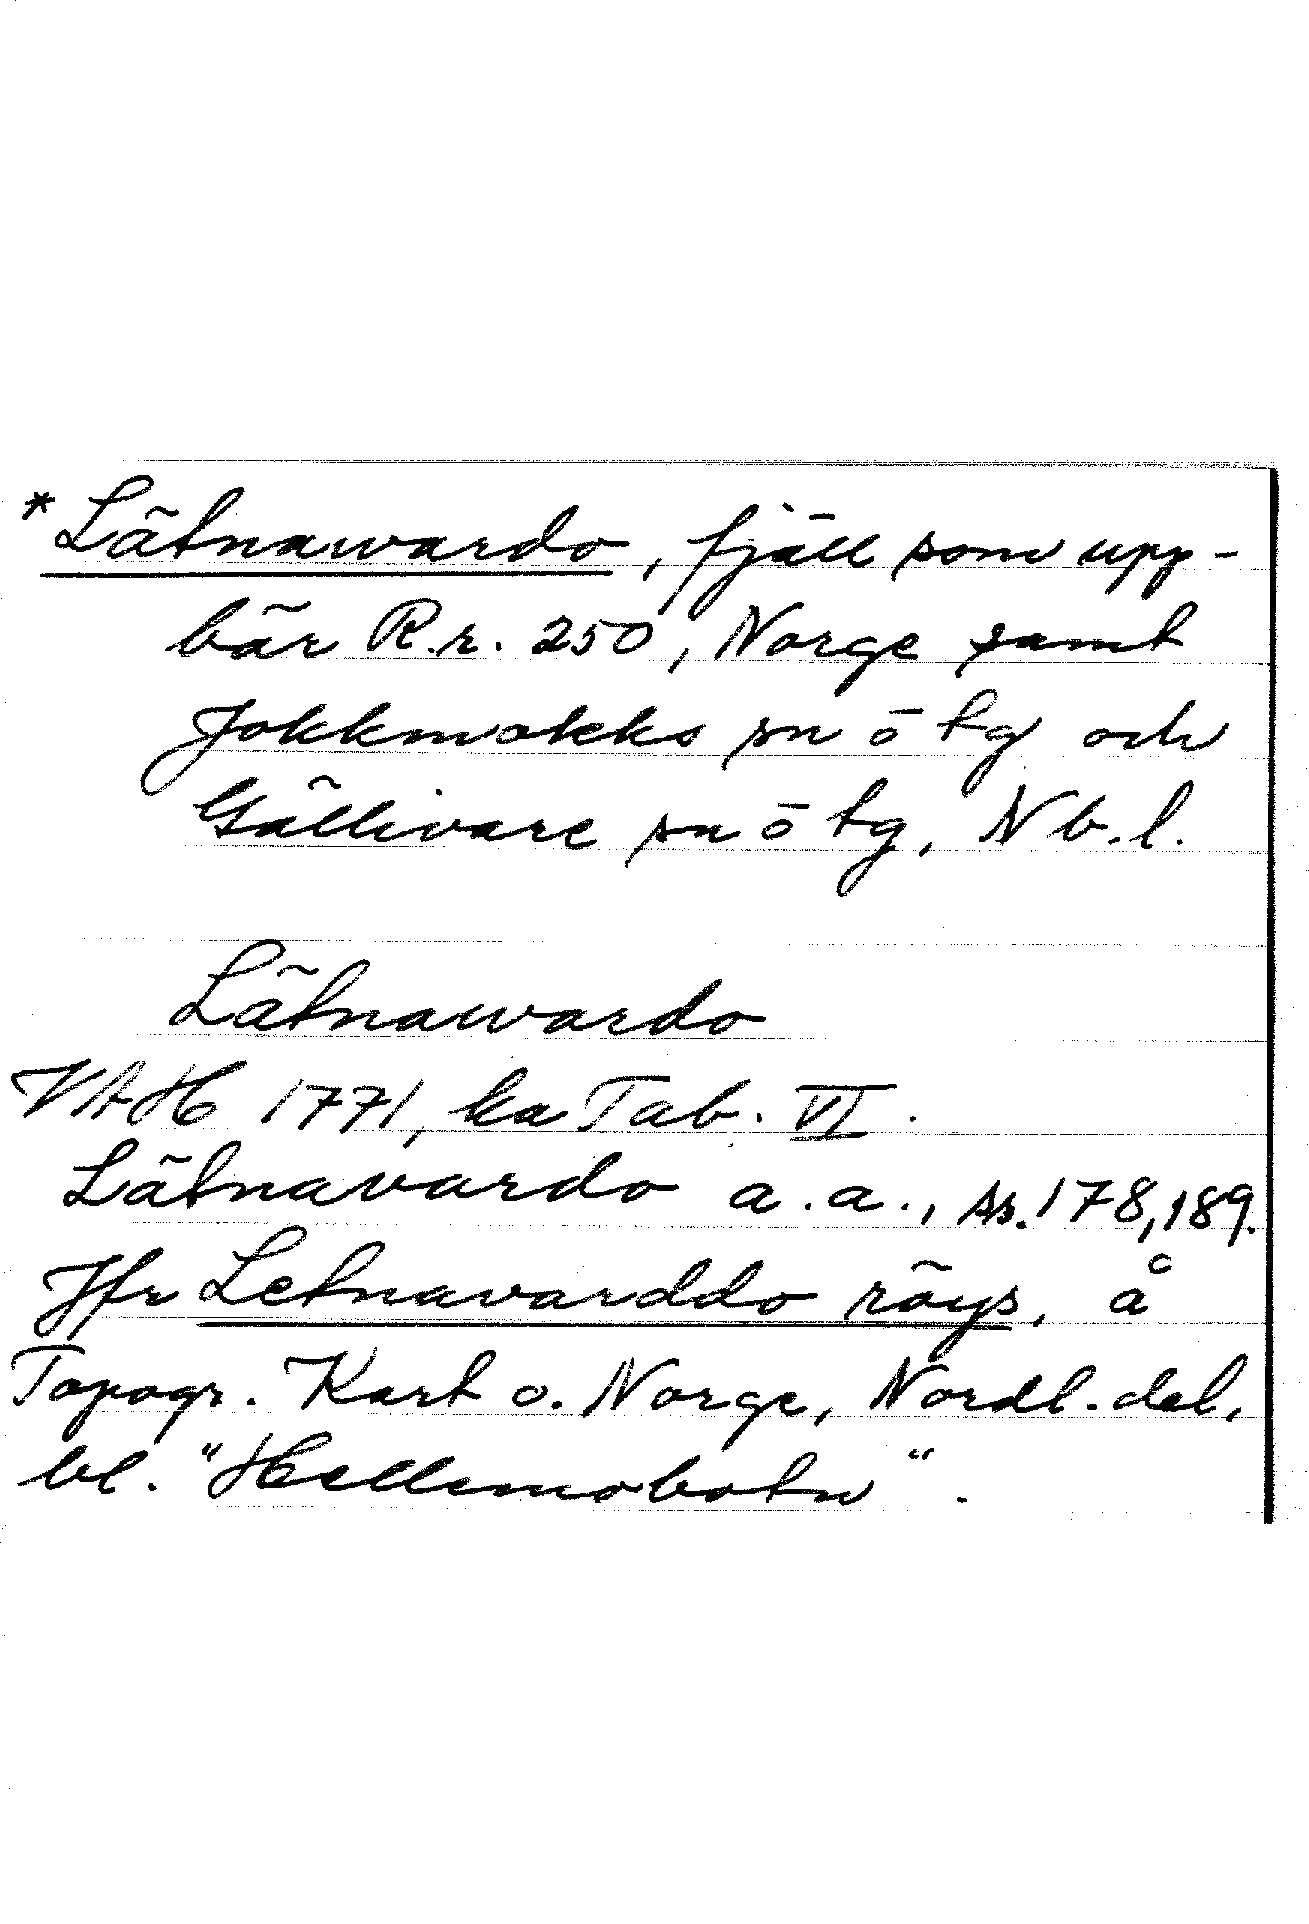 *Lätnawardo, fjäll som upp-
bär R.r. 250, Norge samt
Jokkmokks sn ö tg och
Gällivare sn ö tg, Nb.l.
Lätnawardo
VAH 1771, ka Tab. VI.
Lätnavardo a.a., ss. 178, 189.
Jfr Letnavarddo röys, å
Topogr. Kart o. Norge, Nordl. del,
bl. "Hellemobotn".